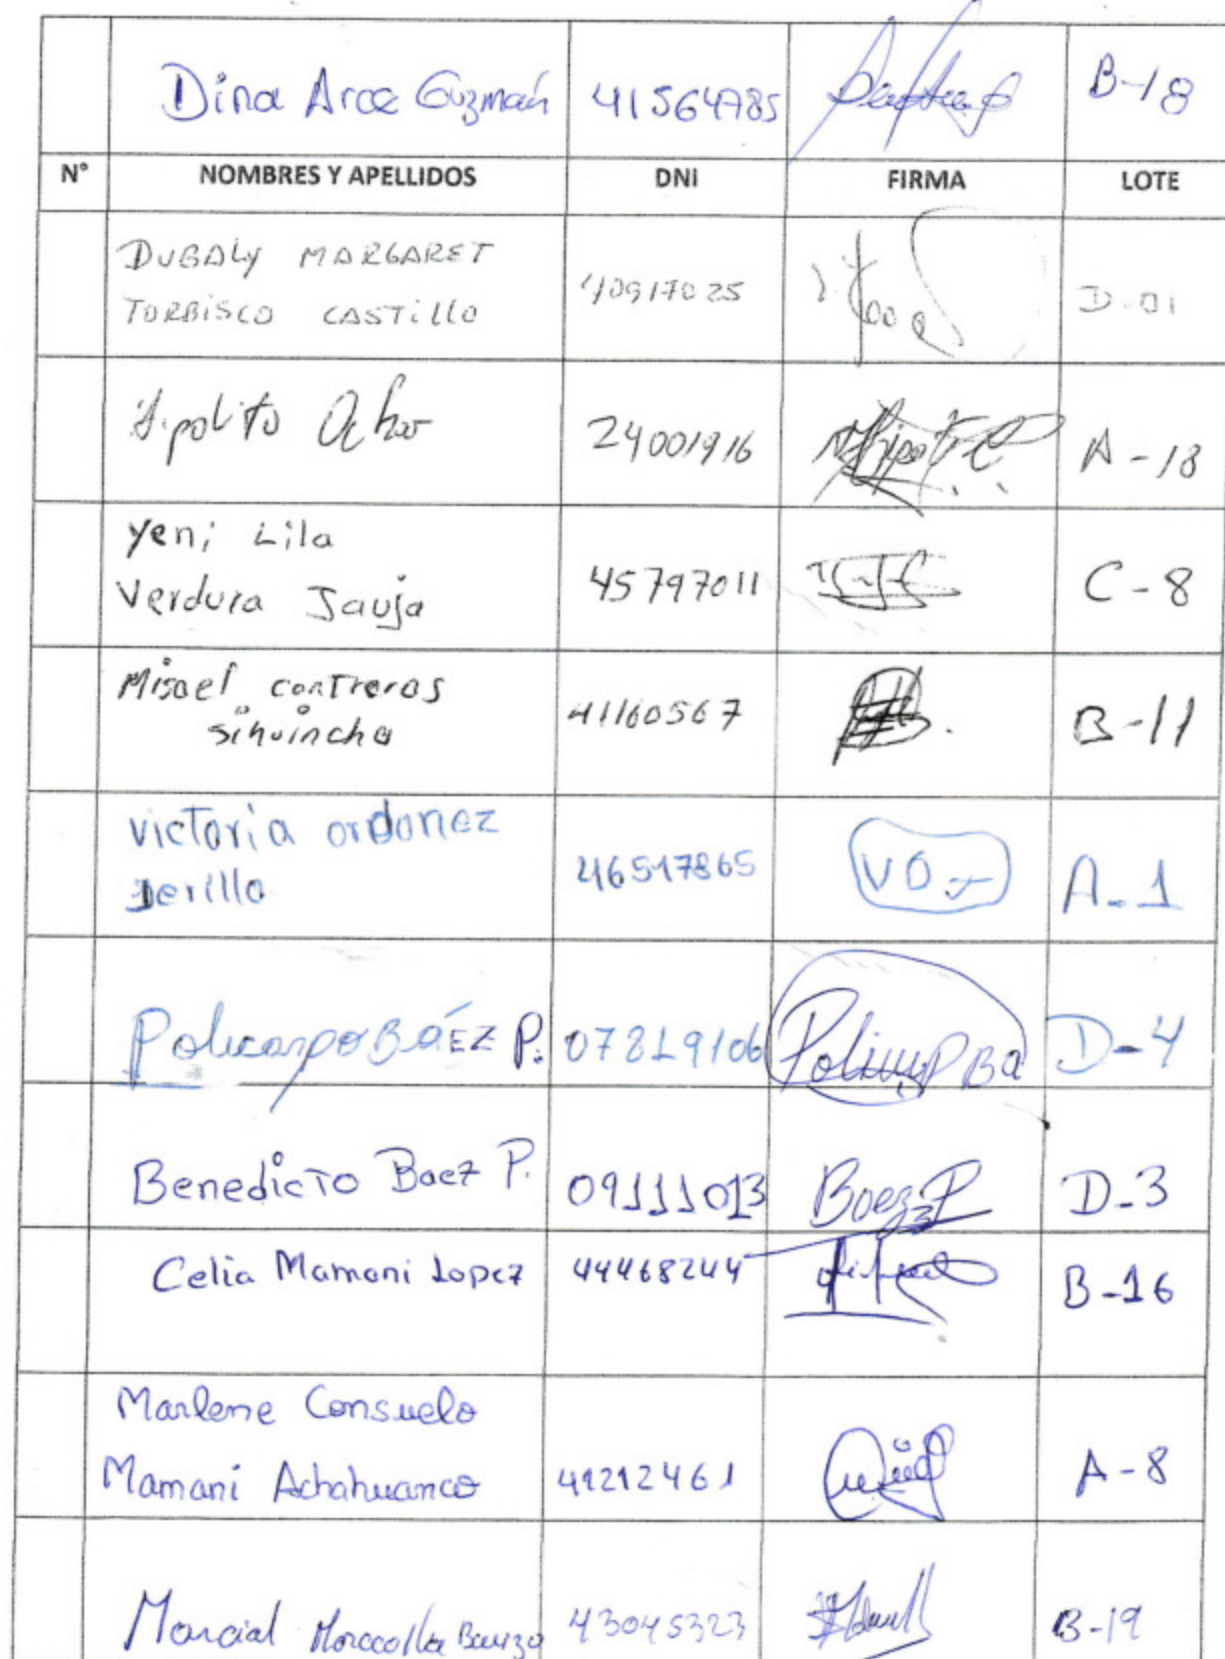 Dina Arce Guzmán 41564785 B-18
N° NOMBRES Y APELLIDOS DNI FIRMA LOTE
DUBALY MARGARET
TORBISCO CASTILLO 40917025 D-01
Hipolito Ochoa 24001916 A-18
Yeni Lila
Verdura Jauja 45797011 C-8
Misael contreras
sihuincha 41160567 B-11
victoria ordonez
Jerillo 46517865 VO A-1
Policarpo BÁEZ P. 07819106 D-4
Benedicto Baez P. 09111013 Baez P D-3
Celia Mamani Lopez 44468244 B-16
Marlene Consuelo
Mamani Achahuanco 41212461 A-8
Marcial 43045323 B-19